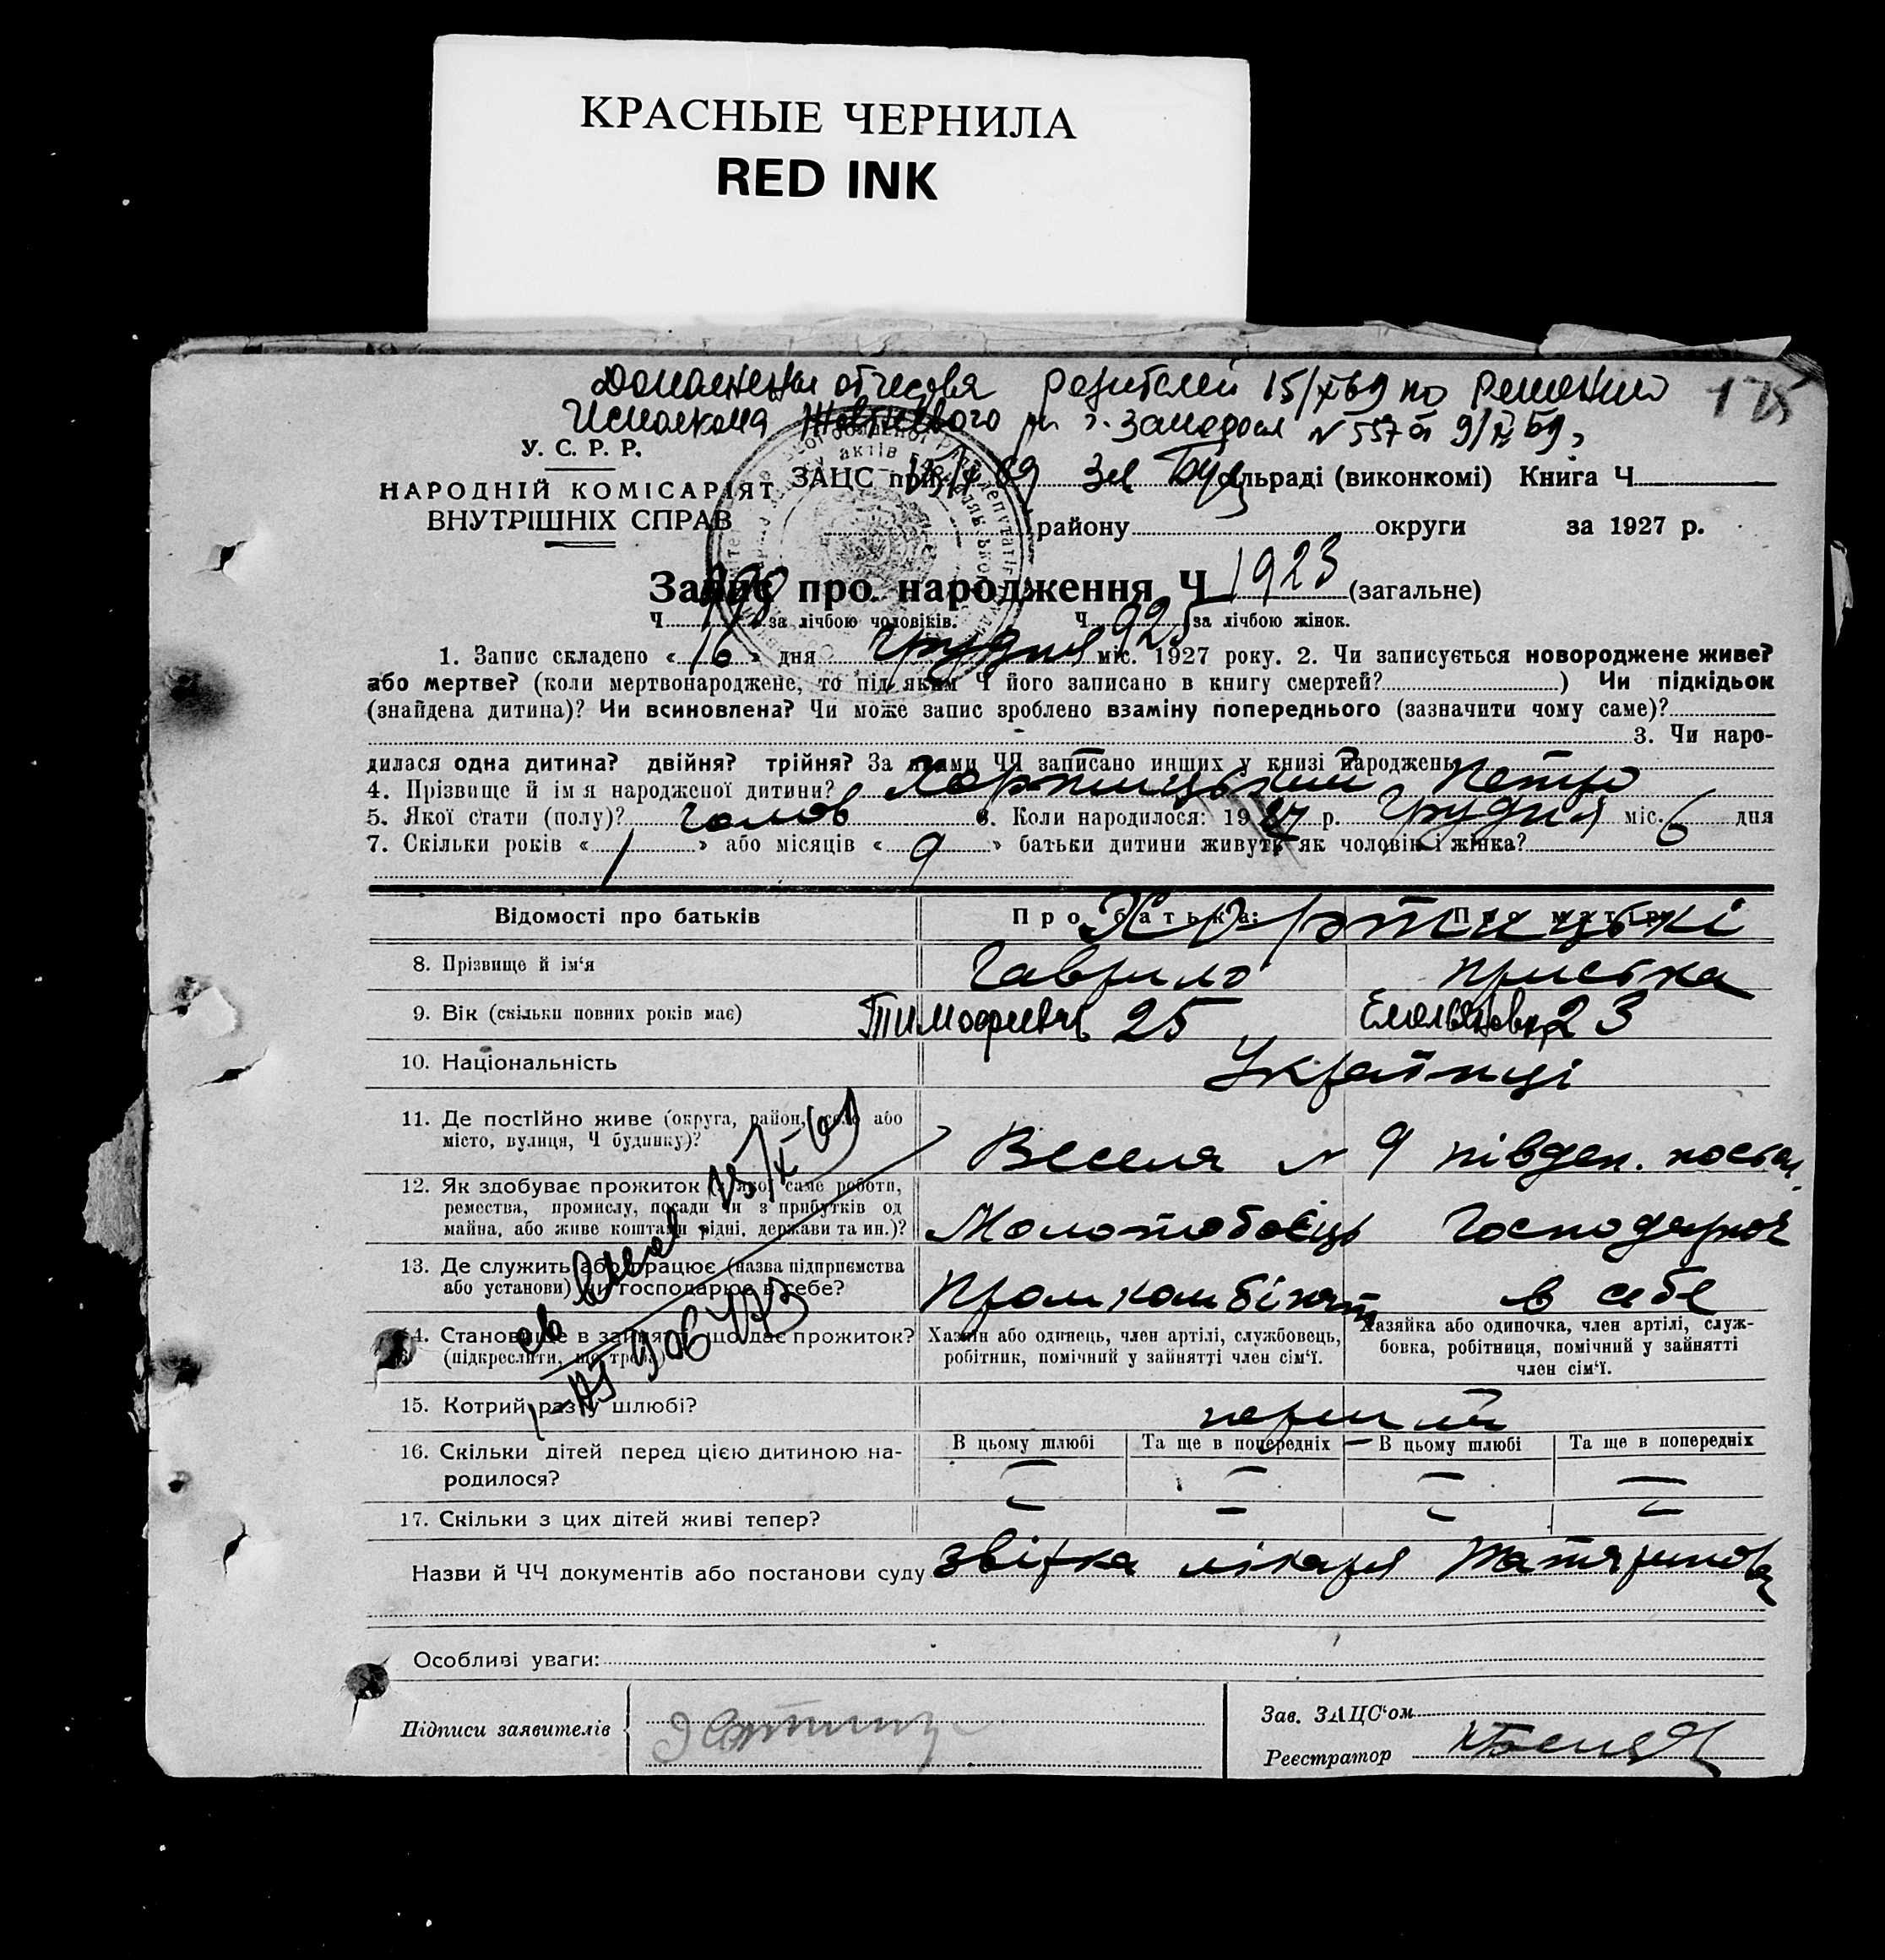 КРАСНЫЕ ЧЕРНИЛА
RED INK
родителей 15/X 69 по решению
Исполкома Жовтневого р. г. Запорожья № 557 от 9/X 69
175
У. С. Р. Р.
НАРОДНІЙ КОМІСАРІЯТ
ВНУТРІШНІХ СПРАВ
ЗАЦС при сільраді (виконкомі) Книга Ч
15/X 69
району округи за 1927 р.
Запис про народження Ч 1923 (загальне)
Ч за лічбою чоловіків. Ч 925 за лічбою жінок.
1. Запис складено «16» дня Грудня міс. 1927 року. 2. Чи записується новороджене живе?
або мертве? (коли мертвонароджене, то під яким Ч його записано в книгу смертей? ) Чи підкідьок
(знайдена дитина)? Чи всиновлена? Чи може запис зроблено взаміну попереднього (зазначити чому саме)?
3. Чи наро-
дилася одна дитина? двійня? трійня? За якими ЧЧ записано инших у книзі народжень
4. Прізвище й імя народженої дитини? Хортицький Петро
5. Якої стати (полу)? чолов 6. Коли народилося: 1927 р. Грудня міс. 6 дня
7. Скільки років «1» або місяців «9» батьки дитини живуть як чоловік і жінка?
Відомості про батьків Про батька: Про матір
Хортицькі
8. Прізвище й ім'я Гаврило Пристка
9. Вік (скільки повних років має) Тимофеевич 25 Емельяновна 23
10. Національність Українці
11. Де постійно живе (округа, район, село або
місто, вулиця, Ч будинку)? Весела № 9 півден. посел.
12. Як здобуває прожиток (з якої саме роботи,
ремества, промислу, посади чи з прибутків од
майна, або живе коштами рідні, держави та ин.)? Молотобоєць Господарює
13. Де служить або працює (назва підприємства
або установи) чи господарює в себе? Промкомбінат в себе
14. Становище в занятті, що дає прожиток?
(підкреслити, що треба)
Хазяїн або одинець, член артілі, службовець,
робітник, помічний у зайнятті член сім'ї.
Хазяйка або одиночка, член артілі, служ-
бовка, робітниця, помічний у зайнятті
член сім'ї.
15/X-69
15. Котрий раз у шлюбі? перший
16. Скільки дітей перед цією дитиною на-
родилося?
В цьому шлюбі Та ще в попередніх В цьому шлюбі Та ще в попередніх
— — — —
17. Скільки з цих дітей живі тепер? — — — —
Назви й ЧЧ документів або постанови суду звірка лікаря
Особливі уваги:
Підписи заявителів
Зав. ЗАЦС'ом
Реєстратор